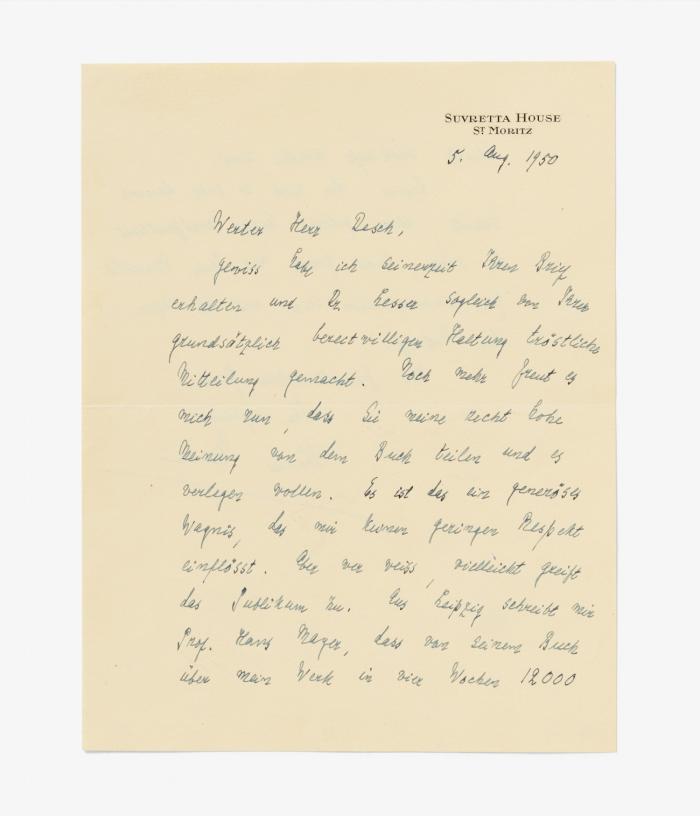 SUVRETTA HOUSE
ST MORITZ
5. Aug. 1950
Werter Herr Desch,
gewiss habe ich seinerzeit Ihren Brief
erhalten und Dr Lesser sogleich von Ihrer
grundsätzlich bereitwilligen Haltung tröstliche
Mitteilung gemacht. Noch mehr freut es
mich nun, dass Sie meine recht hohe
Meinung von dem Buch teilen und es
verlegen wollen. Es ist das ein generöses
Wagnis, das mir keinen geringen Respekt
einflösst. Aber wer weiss, vielleicht greift
das Publikum zu. Aus Leipzig schreibt mir
Prof. Hans Mayer, dass von seinem Buch
über mein Werk in vier Wochen 12000